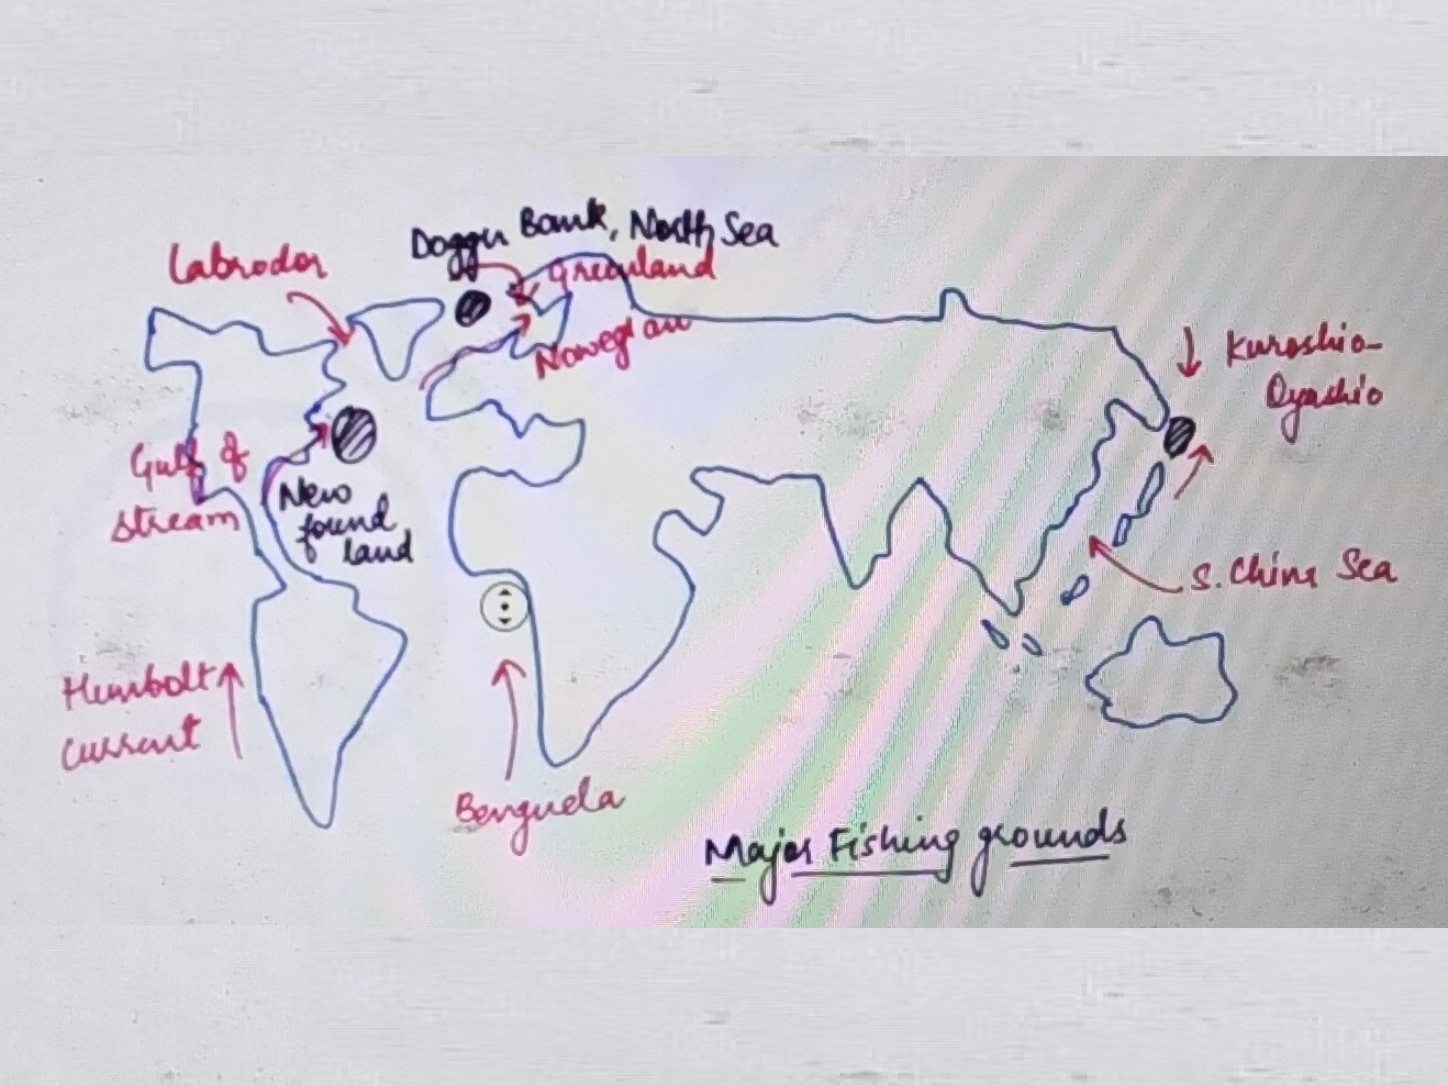 Dogger Bank, North Sea
Labrador
Greenland
Nowegian
Kuroshio-
Oyashio
Gulf of
stream
New
found
land
S. China Sea
Humbolt
current
Benguela
Major Fishing grounds